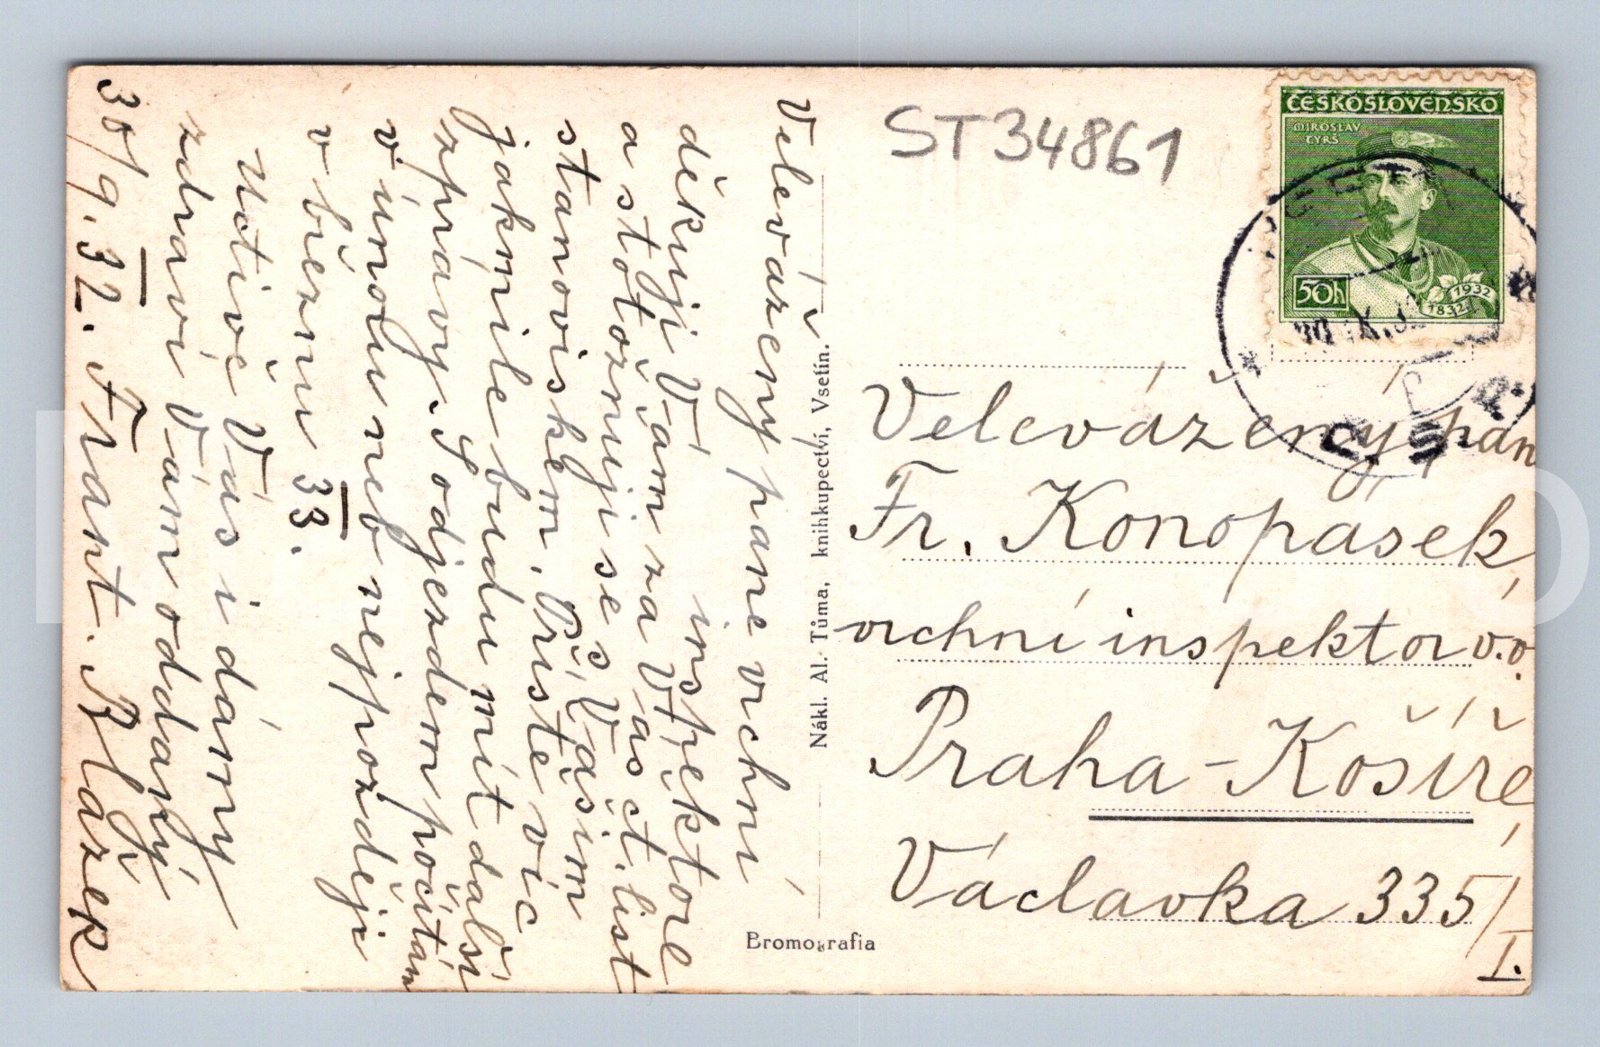 Velevážený pane vrchní
inspektore
děkuji Vám za Vš. ct. list
a stotožnuji se s Vaším
stanoviskem. Příště víc
jakmile budu mít další
zprávy. S odjezdem počítám
v únoru neb nejpozději
v březnu 33.
Uctivě Vás i dámy
zdraví Vám oddaný
30/9.32. Frant. Blážek
Nákl. Al. Tůma, knihkupectví, Vsetín.
Bromografia
ST34861
ČESKOSLOVENSKO
MIROSLAV
TYRŠ
50h
1932
1832
30.IX.32
Velevážený pán
Fr. Konopásek,
vrchní inspektor v.v.
Praha-Košíře
Václavka 335/I.